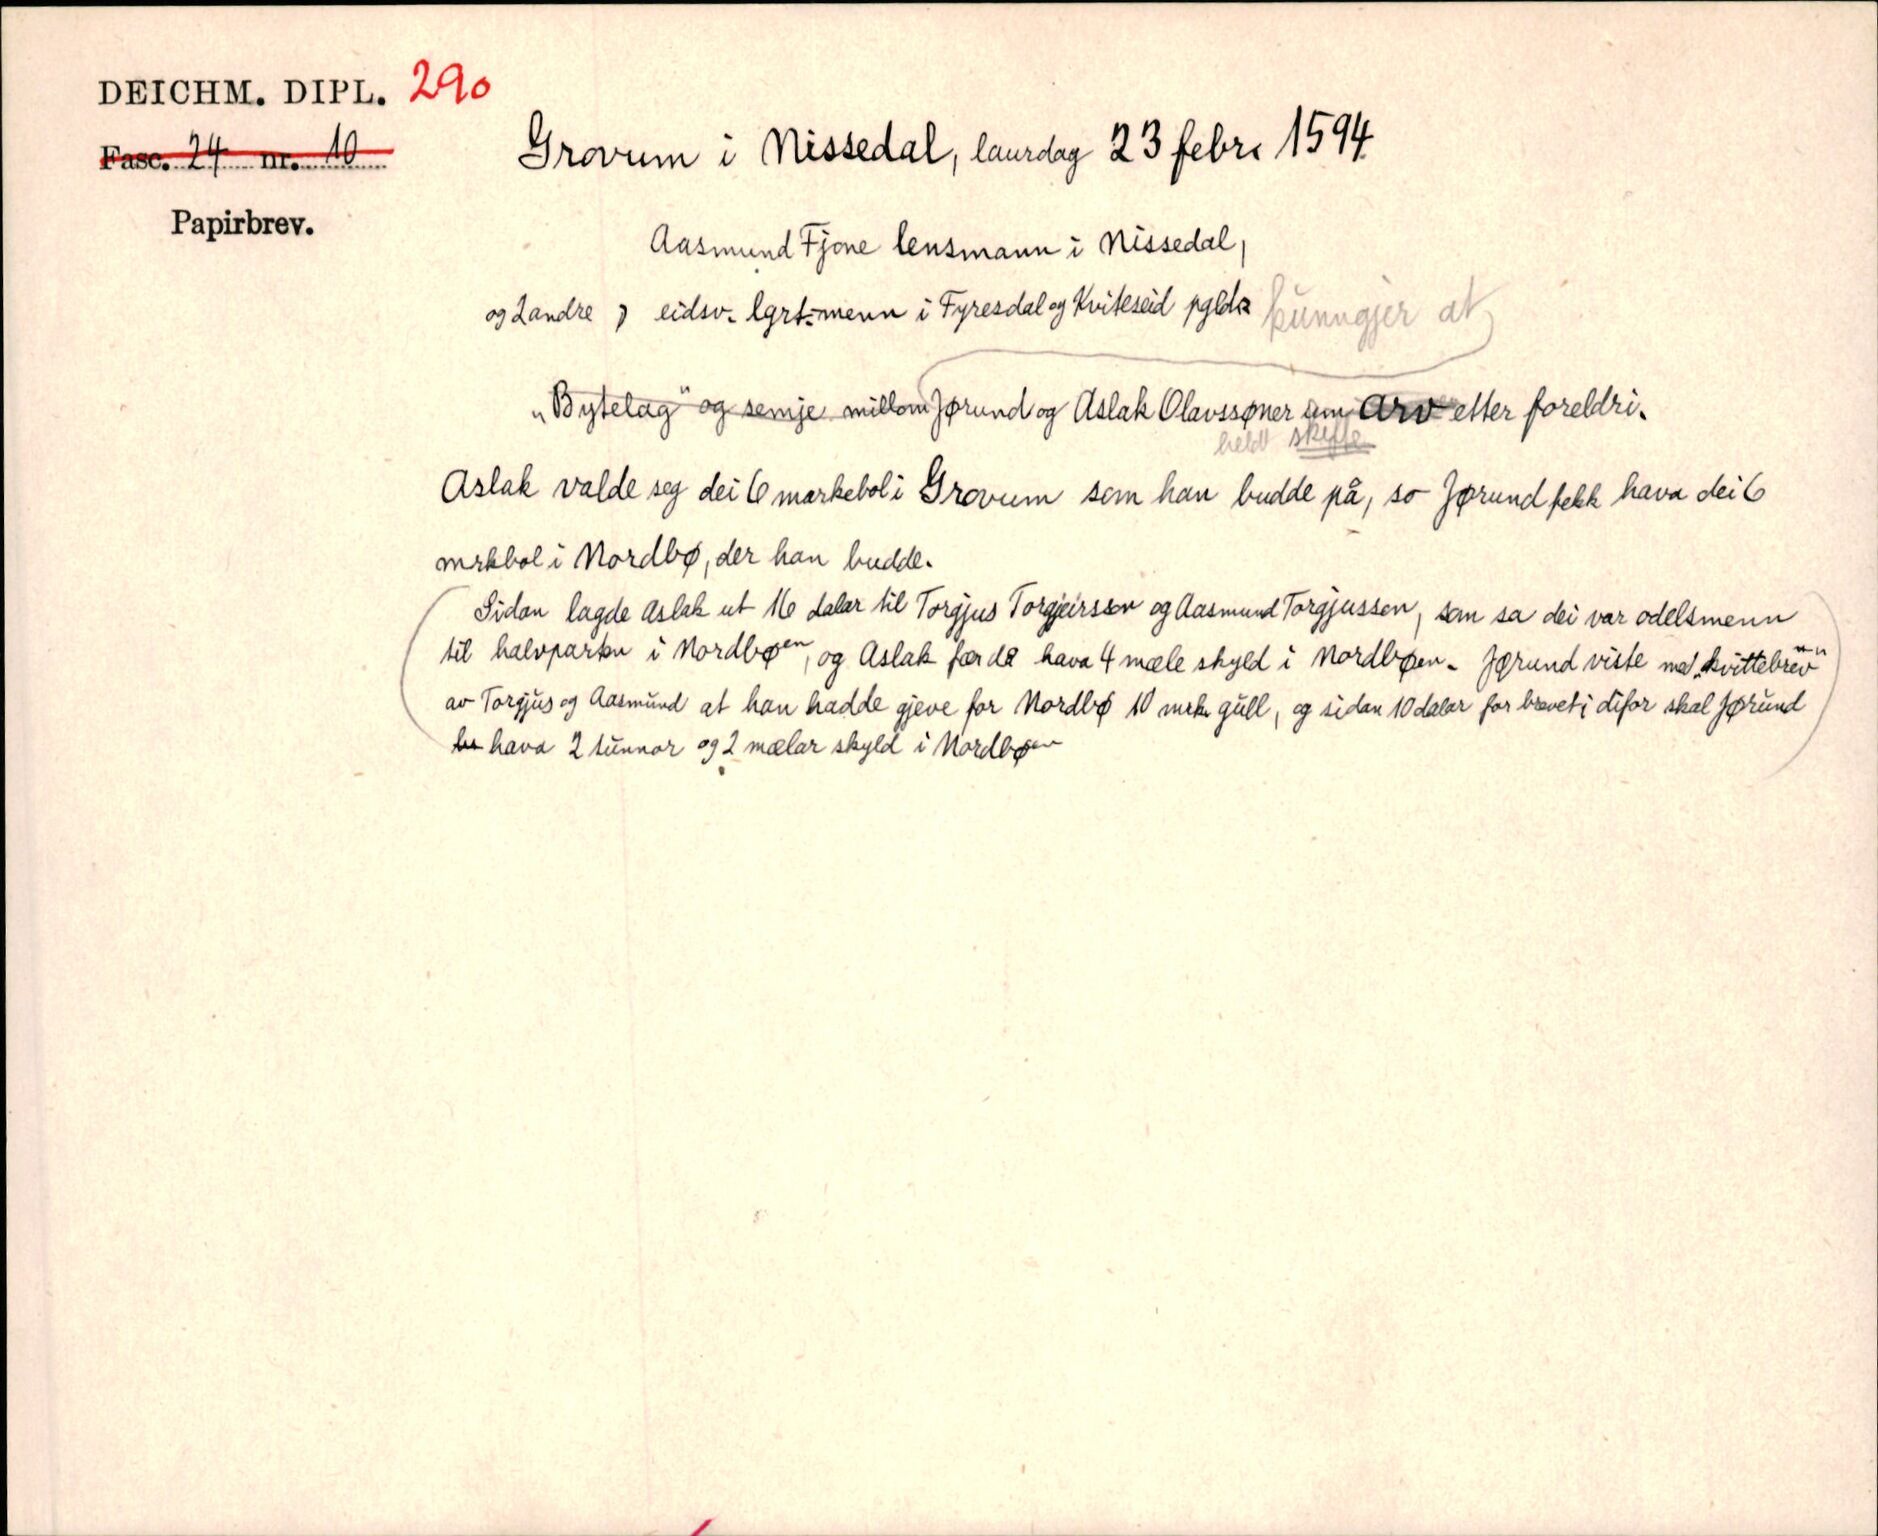 DEICHM. DIPL. 290
Fasc. 24 nr. 10
Papirbrev.
Grovum i Nissedal, laurdag 23 febr. 1594.
Aasmund Fjone lensmann i Nissedal,
og 2 andre , eidsv. lgrt.menn i Fyresdal og Kviteseid pgld. kunngjer at
„Bytelag" og semje millom Jørund og Aslak Olavssøner um arv etter foreldri.
heldt skifte
Aslak valde seg dei 6 markebol i Grovum som han budde på, so Jørund fekk hava dei 6
mrkbol i Nordbø, der han budde.
Sidan lagde Aslak ut 16 dalar til Torgjus Torgjeirsson og Aasmund Torgjusson, som sa dei var odelsmenn
til halvparten i Nordbøen, og Aslak fær då hava 4 mæle skyld i Nordbøen. Jørund viste med „kvittebrev"
av Torgjus og Aasmund at han hadde gjeve for Nordbø 10 mrk. gull, og sidan 10 dalar for brevet; difor skal Jørund
hava 2 tunnor og 2 mælar skyld i Nordbøen